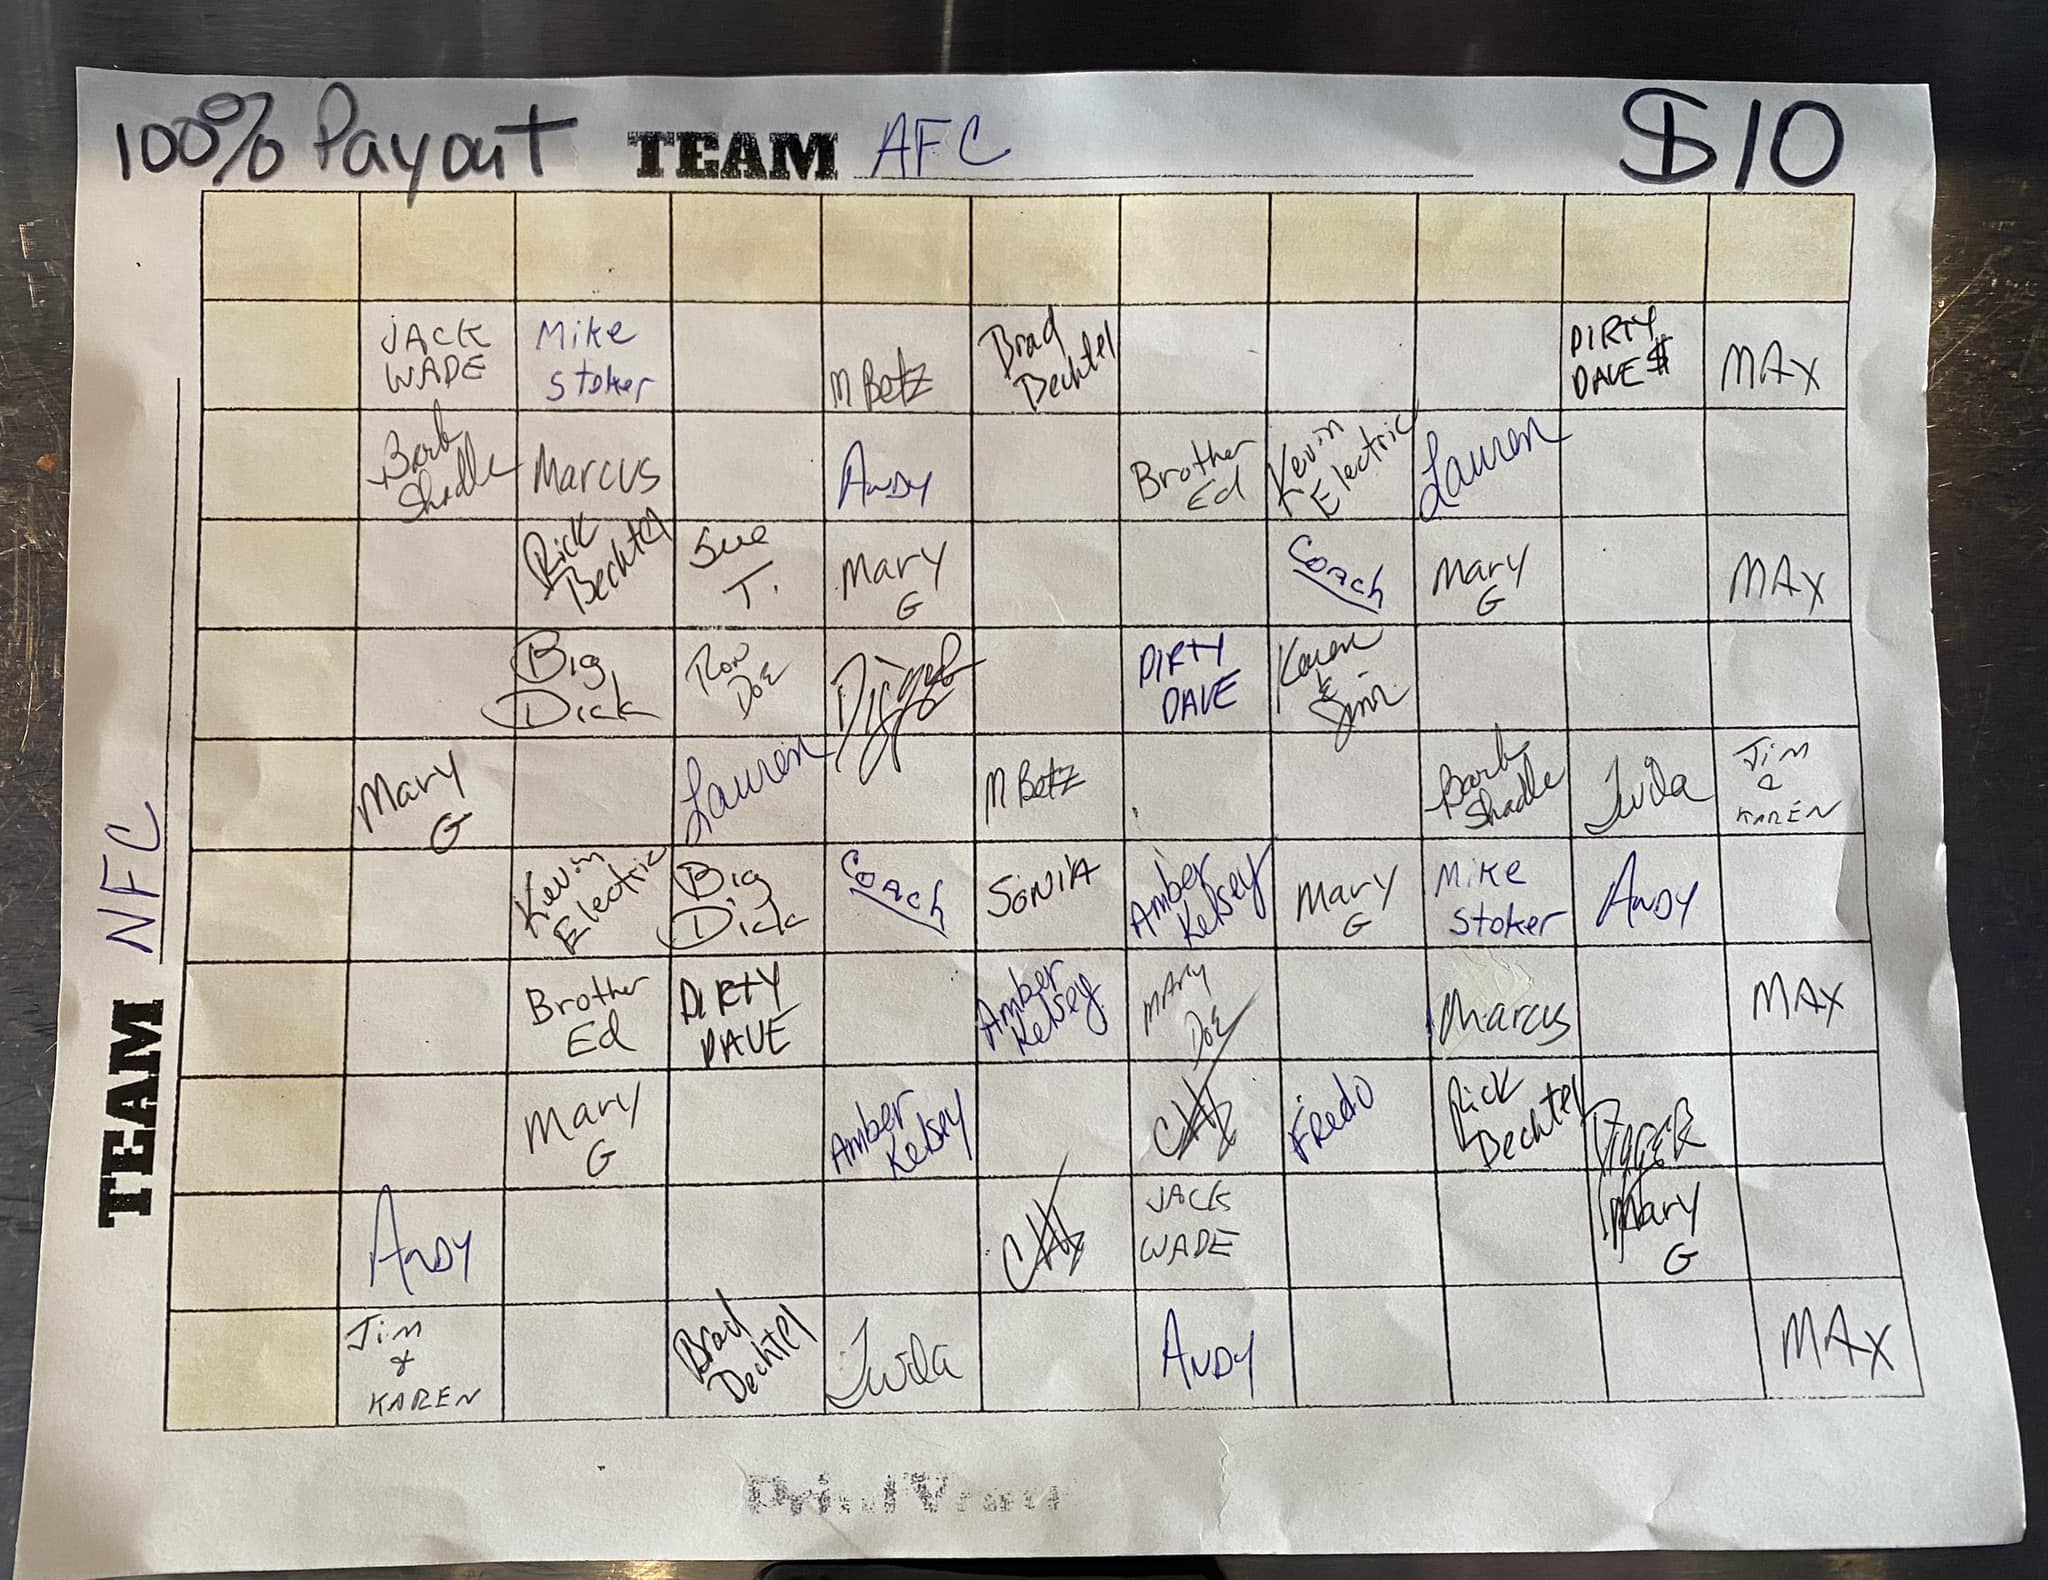 100% Payout TEAM AFC $10
JACK WADE
Mike Stoker
M Betz
Brad Bechtel
DIRTY DAVE $
MAX
Barb Shadle
Marcus
ANDY
Brother Ed
Kevin Electric
Lauren
Rick Bechtel
Sue T.
Mary G
Coach
Mary G
MAX
Big Dick
Ron Doe
Digger
DIRTY DAVE
Karen & Jim
Mary G
Lauren
M Betz
Barb Shadle
Twila
Jim & KAREN
Kevin Electric
Big Dick
Coach
SONIA
Amber Kelsey
Mary G
Mike Stoker
ANDY
Brother Ed
DIRTY DAVE
Amber Kelsey
MARY DOE
Marcus
MAX
Mary G
Amber Kelsey
Fredo
Rick Bechtel
DIGGER
ANDY
JACK WADE
Mary G
Jim & KAREN
Brad Bechtel
Twila
ANDY
MAX
TEAM NFC